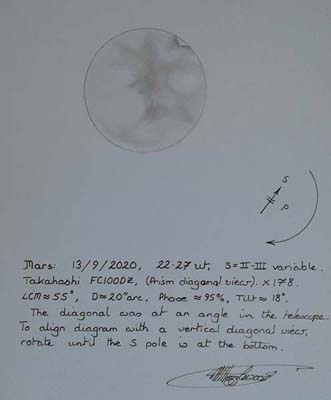 S
P
Mars: 13/9/2020, 22·27 ut, S=II-III variable.
Takahashi FC100DZ, (Prism diagonal view). x178.
LCM≈55°, D≈20"arc, Phase ≈95%, Tilt≈ 18°.
The diagonal was at an angle in the telescope.
To align diagram with a vertical diagonal view,
rotate until the S pole is at the bottom.